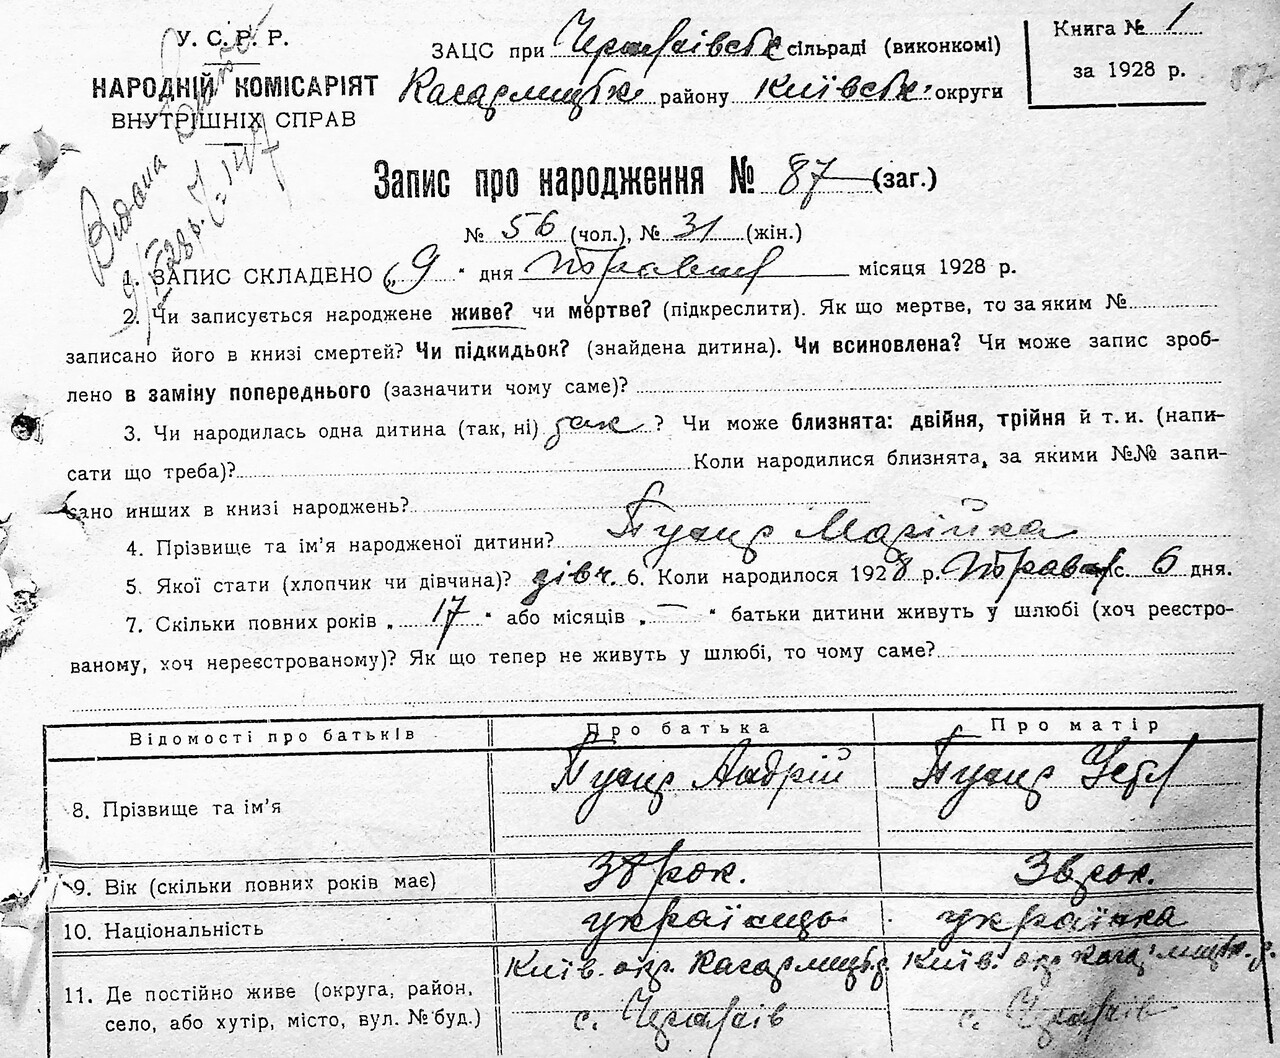 У. С. Р. Р.
НАРОДНІЙ КОМІСАРІЯТ
ВНУТРІШНІХ СПРАВ
ЗАЦС при Черняхівськ сільраді (виконкомі)
Кагарлицьк. району Київськ. округи
Книга № 1
за 1928 р.
87
Видана
Запис про народження № 87 (заг.)
№ 56 (чол.), № 31 (жін.)
1. ЗАПИС СКЛАДЕНО „9 “ дня травня місяця 1928 р.
2. Чи записується народжене живе? чи мертве? (підкреслити). Як що мертве, то за яким №
записано його в книзі смертей? Чи підкидьок? (знайдена дитина). Чи всиновлена? Чи може запис зроб-
лено в заміну попереднього (зазначити чому саме)?
3. Чи народилась одна дитина (так, ні) так ? Чи може близнята: двійня, трійня й т. и. (напи-
сати що треба)? Коли народилися близнята, за якими №№ запи-
сано инших в книзі народжень?
4. Прізвище та ім’я народженої дитини? Пузир Марійка
5. Якої стати (хлопчик чи дівчина)? дівч. 6. Коли народилося 1928 р. травня с. 6 дня.
7. Скільки повних років „ 17 “ або місяців „ — “ батьки дитини живуть у шлюбі (хоч реєстро-
ваному, хоч нереєстрованому)? Як що тепер не живуть у шлюбі, то чому саме?
Відомості про батьків Про батька Про матір
8. Прізвище та ім’я Пузир Андрій Пузир
9. Вік (скільки повних років має) 38 рок. рок.
10. Національність українць українка
11. Де постійно живе (округа, район, Київ. окр. Кагарлицьк. р. Київ. окр. Кагарлицьк. р.
село, або хутір, місто, вул. № буд.) с. Черняхів с. Черняхів